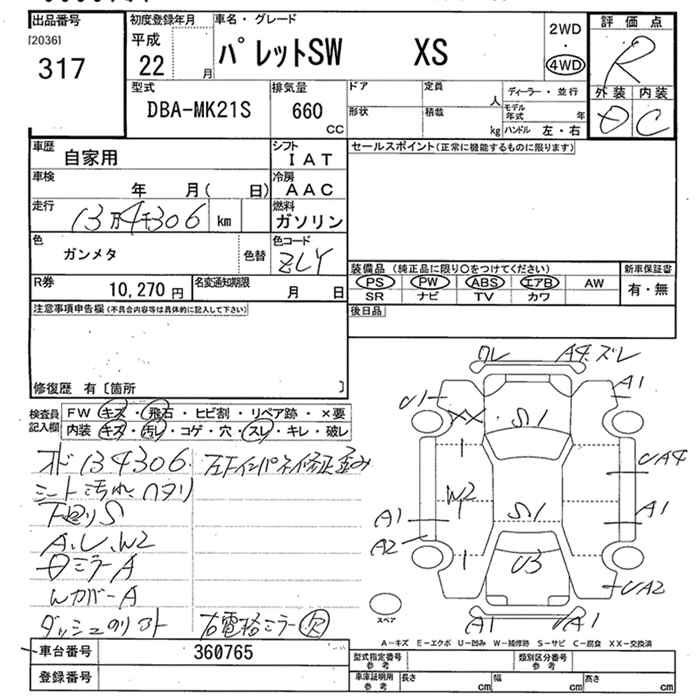 出品番号
[2036]
317
初度登録年月
平成
22 月
車名・グレード
パレットSW XS
2WD
・
4WD
評価点
R
外装 内装
D C
型式
DBA-MK21S
排気量
660
CC
ドア
定員
人
形状
積載
kg
ディーラー・並行
モデル年式 年
ハンドル 左・右
車歴
自家用
シフト
IAT
車検
年 月( 日)
冷房
AAC
走行
13万4千306 km
燃料
ガソリン
色
ガンメタ
色替
色コード
ZLY
R券
10,270円
名変通知期限
月 日
セールスポイント(正常に機能するものに限ります)
装備品(純正品に限り○をつけてください)
PS PW ABS エアB AW
SR ナビ TV カワ
新車保証書
有・無
後日品
注意事項申告欄(不具合内容等は具体的に記入して下さい)
修復歴 有〔箇所 〕
検査員
記入欄
FW キズ・飛石・ヒビ割・リペア跡・×要
内装 キズ・汚レ・コゲ・穴・スレ・キレ・破レ
オド134306.
シート汚れ ヘタリ
下回りS
A,U,W2
Wカバ-A
左Fインパネ修正歪み
右電格ミラー 欠
ワレ
A4.ズレ
U1
XX
S1
A1
W2
UA4
S1
A1
A1
A2
U3
UA2
A1
A1
スペア
A-キズ E-エクボ U-凹み W-補修跡 S-サビ C-腐食 XX-交換済
車台番号
360765
登録番号
型式指定番号
参考
類別区分番号
参考
車庫証明用
参考
長さ cm
幅 cm
高さ cm